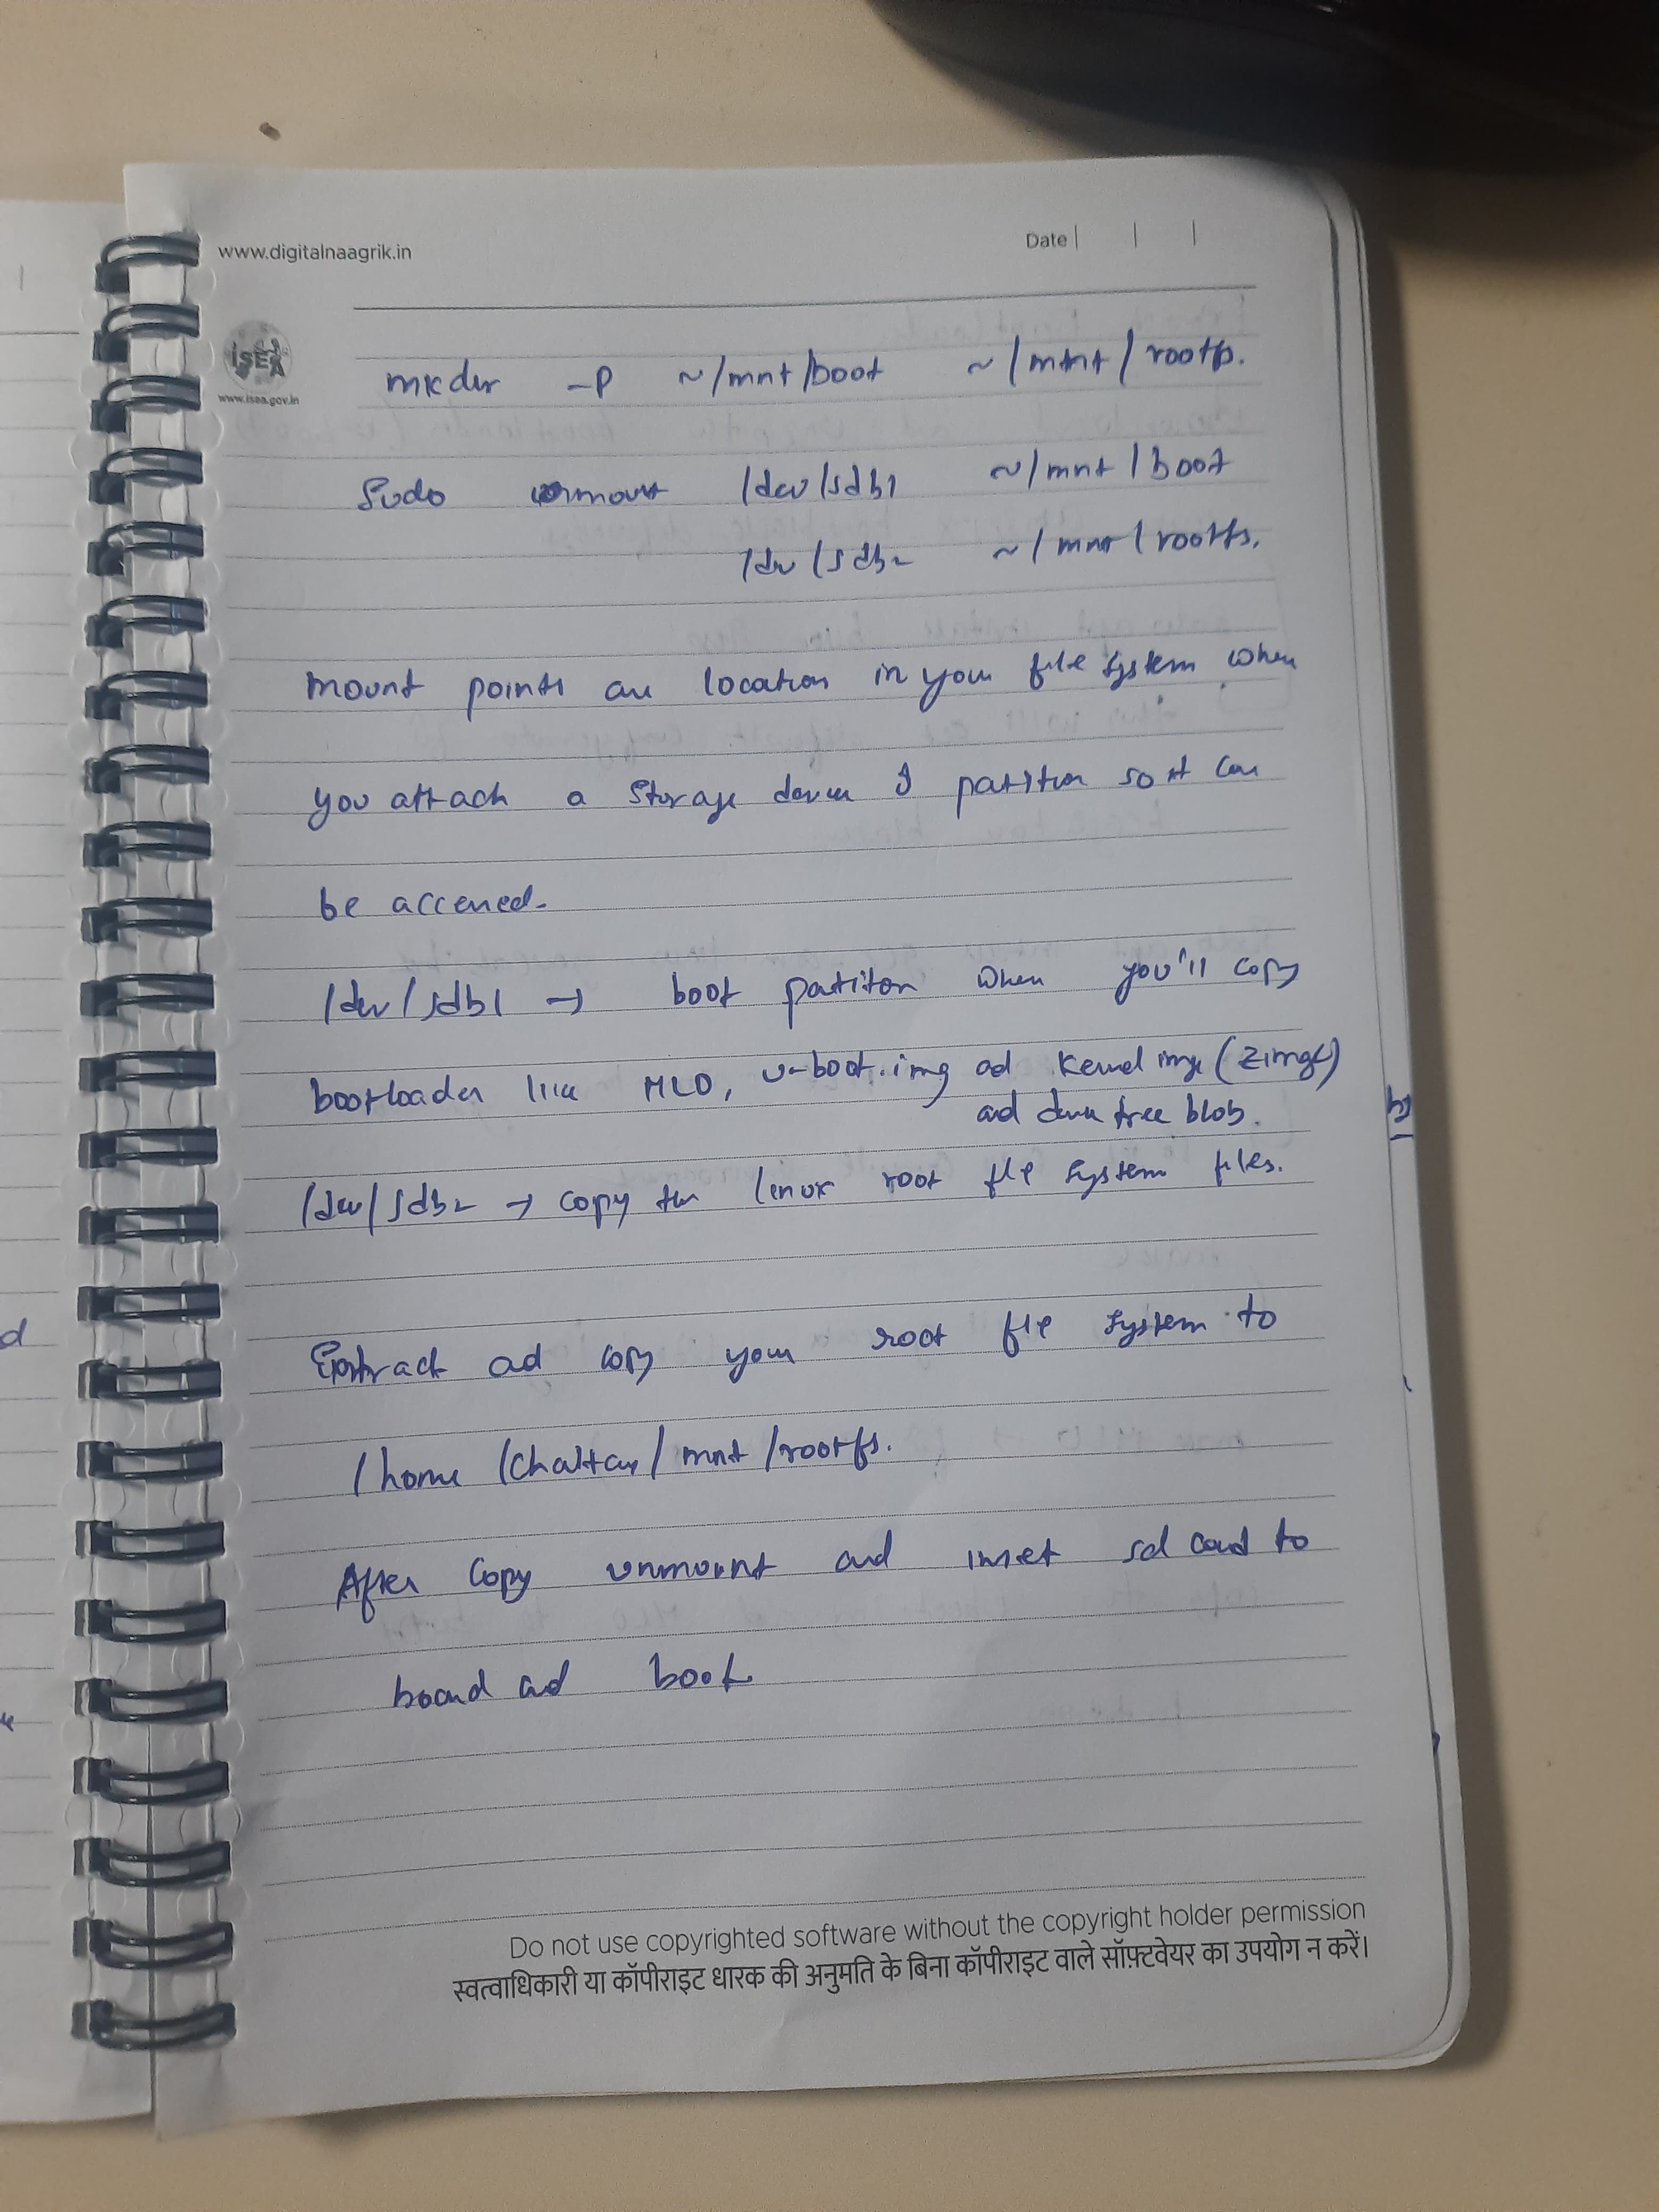 www.digitalnaagrik.in
Date
ISEA
www.isea.gov.in
mkdir -p ~/mnt/boot ~/mnt/rootfs.
Sudo mount /dev/sdb1 ~/mnt/boot
/dev/sdb2 ~/mnt/rootfs.
mount points are location in your file system when
you attach a storage device & partition so it can
be accessed.
/dev/sdb1 → boot partiton when you'll copy
bootloader like MLO, u-boot.img ad Kernel img (zimg)
ad device tree blob.
/dev/sdb2 → copy the linux root file system files.
Extract ad copy your root file system to
/home/chaitany/mnt/rootfs.
After copy unmount and insert sd card to
board ad boot
Do not use copyrighted software without the copyright holder permission
स्वत्वाधिकारी या कॉपीराइट धारक की अनुमति के बिना कॉपीराइट वाले सॉफ़्टवेयर का उपयोग न करें।